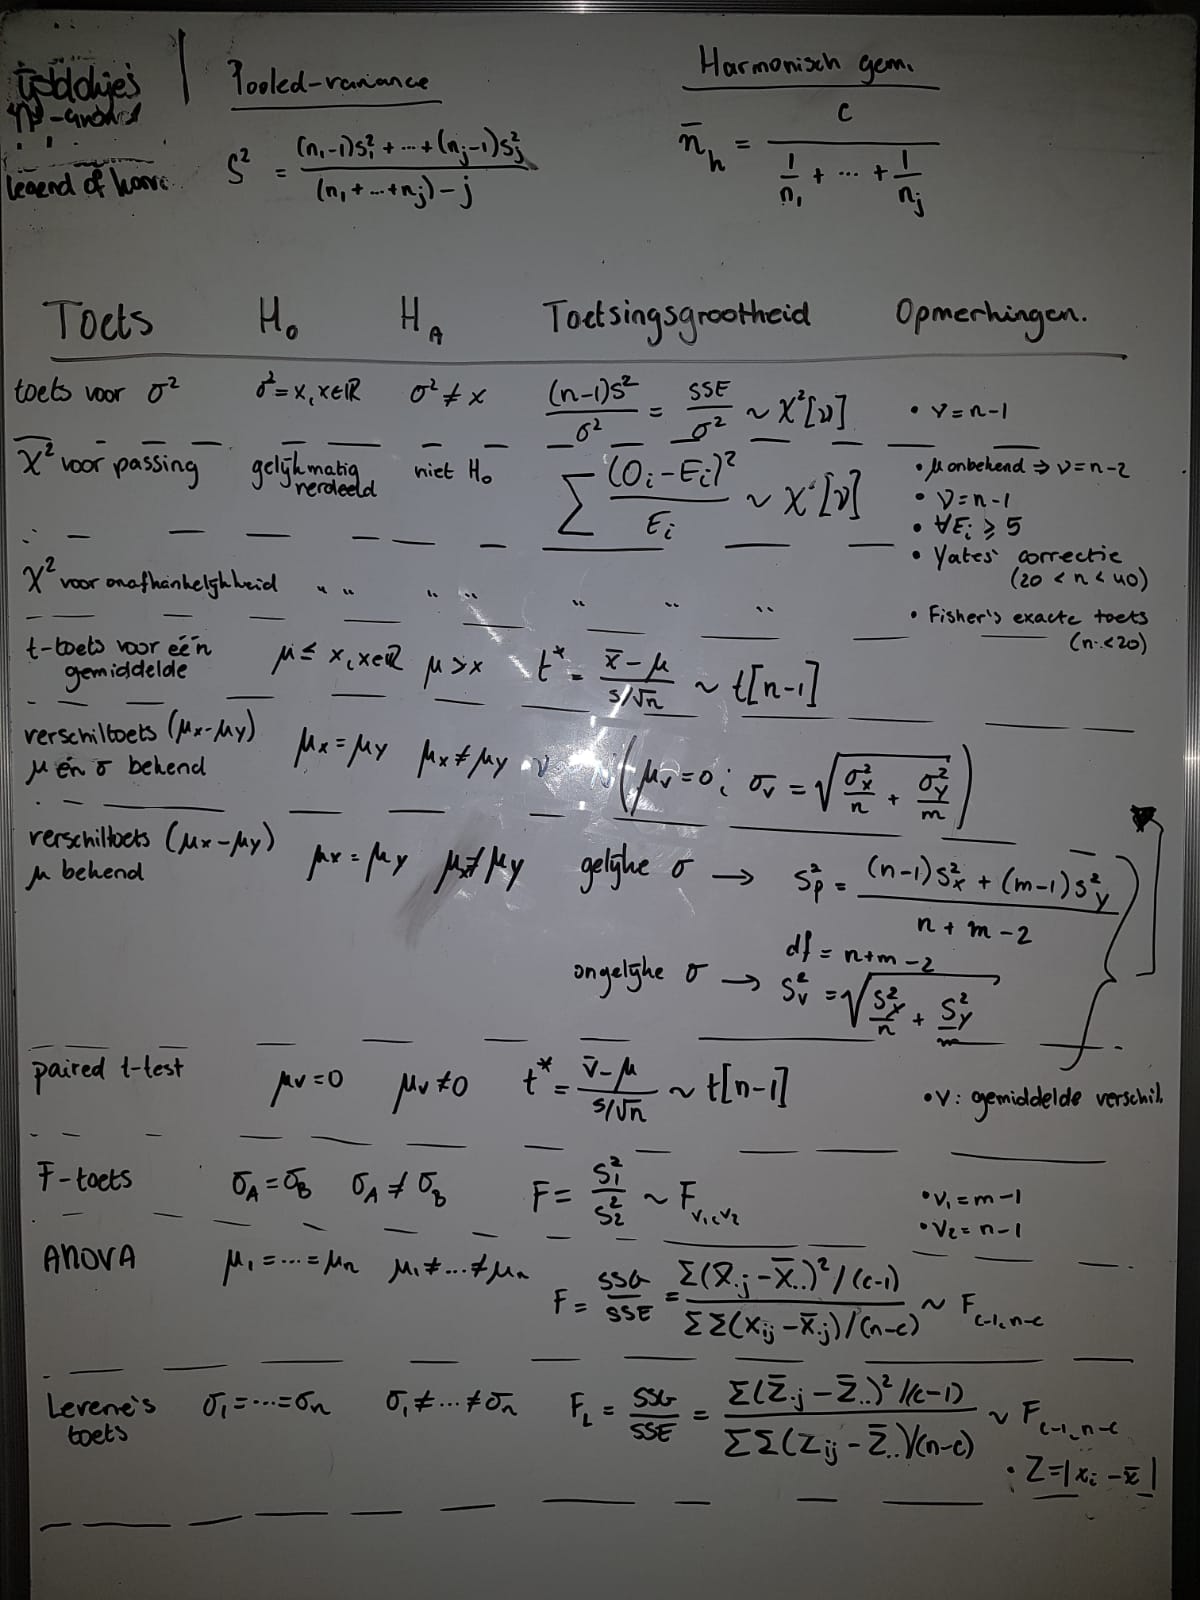 Pooled-variance
S² = ((n₁-1)s₁² + ... + (nⱼ-1)sⱼ²) / ((n₁ + ... + nⱼ) - j)
Harmonisch gem.
n̄ₕ = c / (1/n₁ + ... + 1/nⱼ)
Legend of
Toets H₀ H_A Toetsingsgrootheid Opmerkingen.
toets voor σ² σ² = x, x∈ℝ σ² ≠ x (n-1)s²/σ² = SSE/σ² ~ χ²[ν] • ν = n-1
χ² voor passing gelijkmatig verdeeld niet H₀ ∑ (Oᵢ-Eᵢ)²/Eᵢ ~ χ²[ν]
• μ onbekend ⇒ ν = n-2
• ν = n-1
• ∀Eᵢ ⩾ 5
• Yates' correctie
(20 < n < 40)
χ² voor onafhankelijkheid " " " " " " "
• Fisher's exacte toets
(n < 20)
t-toets voor één gemiddelde μ ≤ x, x∈ℝ μ > x t* = (x̄ - μ)/(s/√n) ~ t[n-1]
verschiltoets (μx-μy)
μ én σ bekend μx = μy μx ≠ μy v ~ N(μv = 0; σv = √(σx²/n + σy²/m))
verschiltoets (μx-μy)
μ bekend μx = μy μx ≠ μy gelijke σ → Sp² = ((n-1)Sx² + (m-1)Sy²) / (n + m - 2)
df = n+m-2
ongelijke σ → Sv² = √(Sx²/n + Sy²/m)
paired t-test μv = 0 μv ≠ 0 t* = (v̄ - μ)/(s/√n) ~ t[n-1] • v: gemiddelde verschil.
F-toets σA = σB σA ≠ σB F = S₁²/S₂² ~ F v₁, v₂
• v₁ = m-1
• v₂ = n-1
ANOVA μ₁ = ... = μn μ₁ ≠ ... ≠ μn F = SSG/SSE = (Σ(x̄.j - x̄..)²/(c-1)) / (ΣΣ(xij - x̄.j)/(n-c)) ~ F c-1, n-c
Levene's toets σ₁ = ... = σn σ₁ ≠ ... ≠ σn F_L = SSG/SSE = (Σ(Z̄.j - Z̄..)²/(c-1)) / (ΣΣ(Zij - Z̄..)/(n-c)) ~ F c-1, n-c
• Z = |xᵢ - x̄|